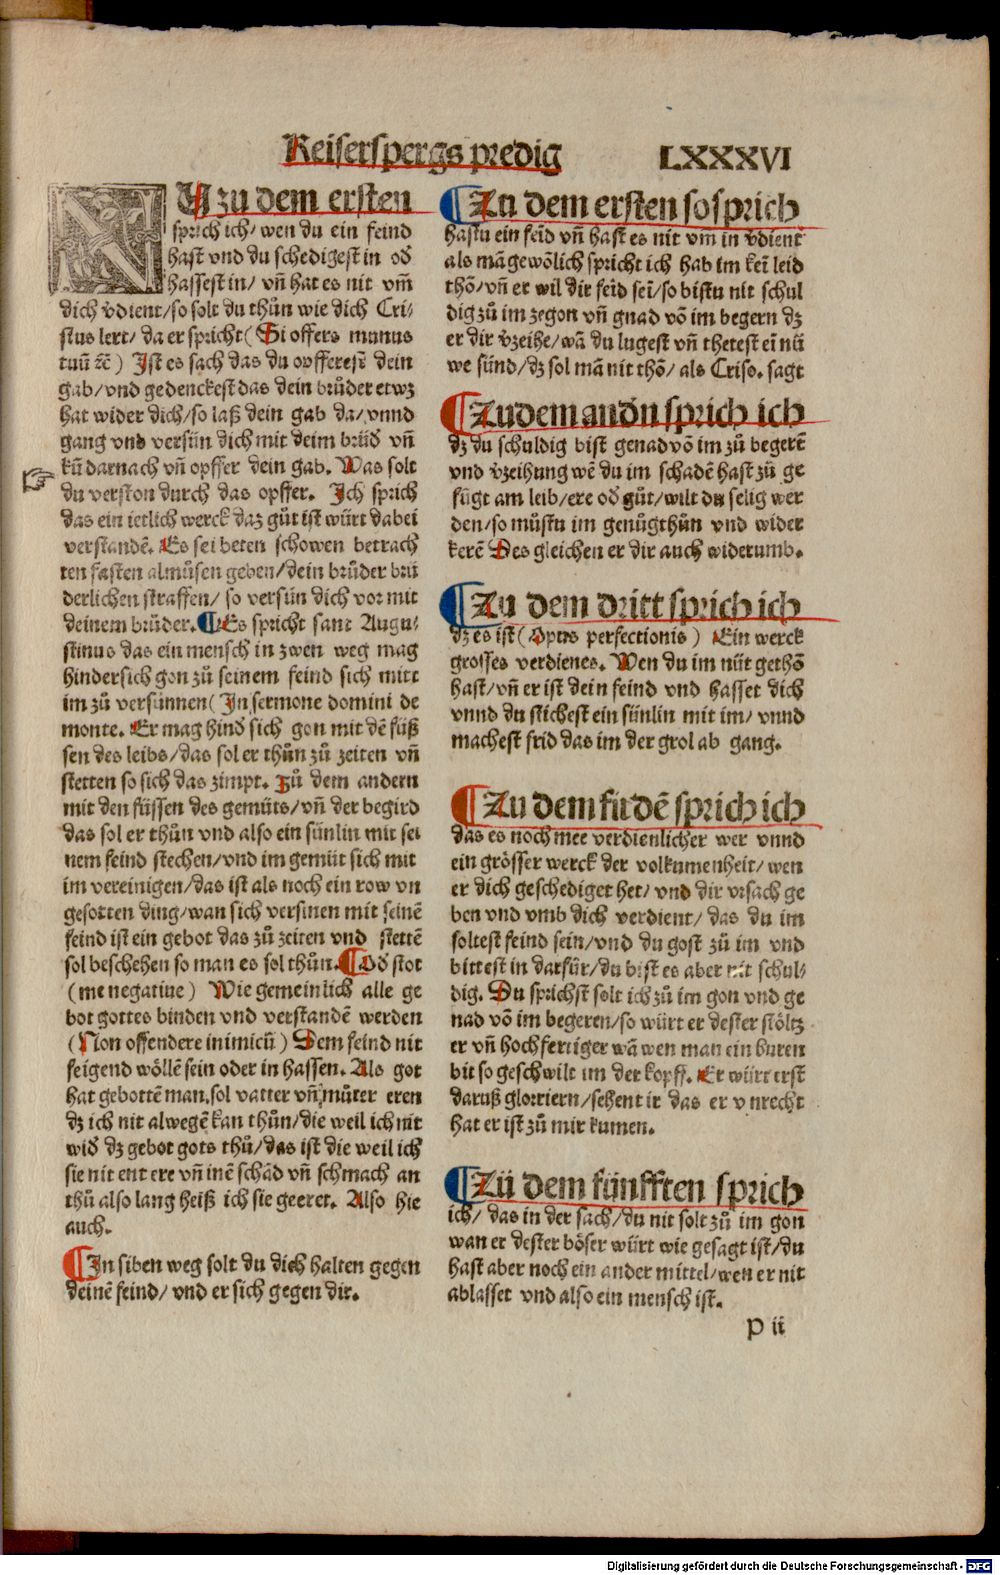 Keiserspergs predig LXXXVI
NU zu dem ersten
sprich ich/ wen du ein feind
hast vnd du schedigest in od̄
hassest in/ vn̄ hat es nit vm̄
dich v̄dient/ so solt du thůn wie dich Cri/
stus lert/ da er spricht (Si offers munus
tuū ꝛc̄) Ist es sach das du opfferest dein
gab/ vnd gedenckest das dein brůder etwz
hat wider dich/ so laß dein gab da/ vnnd
gang vnd versün dich mit deim brůd̄ vn̄
kū darnach vn̄ opffer dein gab. Was solt
du verston durch das opffer. Ich sprich
das ein ietlich werck daz gůt ist würt dabei
verstandē. Es sei beten schowen betrach
ten fasten almůsen geben/ dein brůder brů
derlichen straffen/ so versün dich vor mit
deinem brůder. ¶ Es spricht sant Augu/
stinus das ein mensch in zwen weg mag
hindersich gon zů seinem feind sich mitt
im zů versünnen (In sermone domini de
monte. Er mag hind̄ sich gon mit dē füß
sen des leibs/ das sol er thůn zů zeiten vn̄
stetten so sich das zimpt. Zů dem andern
mit den füssen des gemüts/ vn̄ der begird
das sol er thůn vnd also ein sünlin mit sei
nem feind stechen/ vnd im gemüt sich mit
im vereinigen/ das ist als noch ein row vn
gesotten ding/ wan sich versinen mit seinē
feind ist ein gebot das zů zeiten vnd stettē
sol beschehen so man es sol thůn. ¶ Od̄ stot
(me negatiue) Wie gemeinlich alle ge
bot gottes binden vnd verstandē werden
(Non offendere inimicū) Dem feind nit
feigend wöllē sein oder in hassen. Als got
hat gebottē man sol vatter vn̄ můter eren
dz ich nit alwegē kan thůn/ die weil ich nit
wid̄ dz gebot gots thů/ das ist die weil ich
sie nit ent ere vn̄ inē schād vn̄ schmach an
thů also lang heiß ich sie geeret. Also hie
auch.
¶ In siben weg solt du dich halten gegen
deinē feind/ vnd er sich gegen dir.
¶ Zu dem ersten so sprich
hastu ein feīd vn̄ hast es nit vm in v̄dient
als mā gewōlich spricht ich hab im keī leid
thō/ vn̄ er wil dir feīd seī/ so bistu nit schul
dig zů im zegon vn̄ gnad vō im begern dz
er dir v̄zeihe/ wā du lugest vn̄ thetest eī nü
we sünd/ dz sol mā nit thō/ als Criso. sagt
¶ Zu dem andn̄ sprich ich
dz du schuldig bist genad vō im zů begerē
vnd v̄zeihung wē du im schadē hast zů ge
fügt am leib/ ere od̄ gůt/ wilt du selig wer
den/ so můstu im genůgthůn vnd wider
kerē Des gleichen er dir auch widerumb.
¶ Zu dem dritt sprich ich
dz es ist (Opus perfectionis) Ein werck
grosses verdienes. Wen du im nüt gethō
hast/ vn̄ er ist dein feind vnd hasset dich
vnnd du stichest ein sünlin mit im/ vnnd
machest frid das im der grol ab gang.
¶ Zu dem firdē sprich ich
das es noch mee verdienlicher wer vnnd
ein grösser werck der volkumenheit/ wen
er dich geschediget het/ vnd dir vrsach ge
ben vnd vmb dich verdient/ das du im
soltest feind sein/ vnd du gost zů im vnd
bittest in darfür/ du bist es aber nit schul/
dig. Du sprichst solt ich zů im gon vnd ge
nad vō im begeren/ so würt er dester stöltz
er vn̄ hochfertiger wā wen man ein buren
bit so geschwilt im der kopff. Er würt erst
daruß gloriern/ sehent ir das er vnrecht
hat er ist zů mir kumen.
¶ Zů dem fünfften sprich
ich/ das in der sach/ du nit solt zů im gon
wan er dester böser würt wie gesagt ist/ du
hast aber noch ein ander mittel/ wen er nit
ablasset vnd also ein mensch ist.
P ii
Digitalisierung gefördert durch die Deutsche Forschungsgemeinschaft - DFG